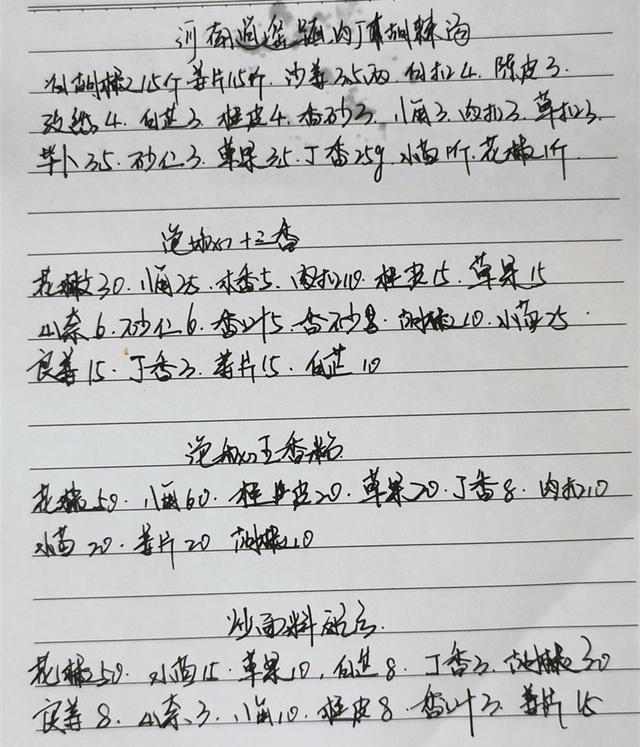 河南逍遥镇肉丁胡辣汤
白胡椒15斤 姜片15斤. 沙姜35两 白扣24. 陈皮3.
孜然4. 白芷3. 桂皮4. 香砂3. 八角3. 肉扣3. 草扣23.
毕卜35. 砂仁3. 草果35. 丁香25g. 小茴1斤. 花椒1斤
十三香
花椒30. 八角25. 木香5. 肉扣10. 桂皮15. 草果15
山奈6. 砂仁6. 香叶5. 香砂8. 胡椒10. 小茴25.
良姜15. 丁香3. 姜片15. 白芷10
五香粉
花椒50. 八角60. 桂皮20. 草果20. 丁香8. 肉扣10
小茴20. 姜片20 胡椒10
炒面料配方.
花椒50. 小茴15. 草果10. 白芷8. 丁香3. 胡椒30
良姜8. 山奈3. 八角10. 桂皮8. 香叶3. 姜片15